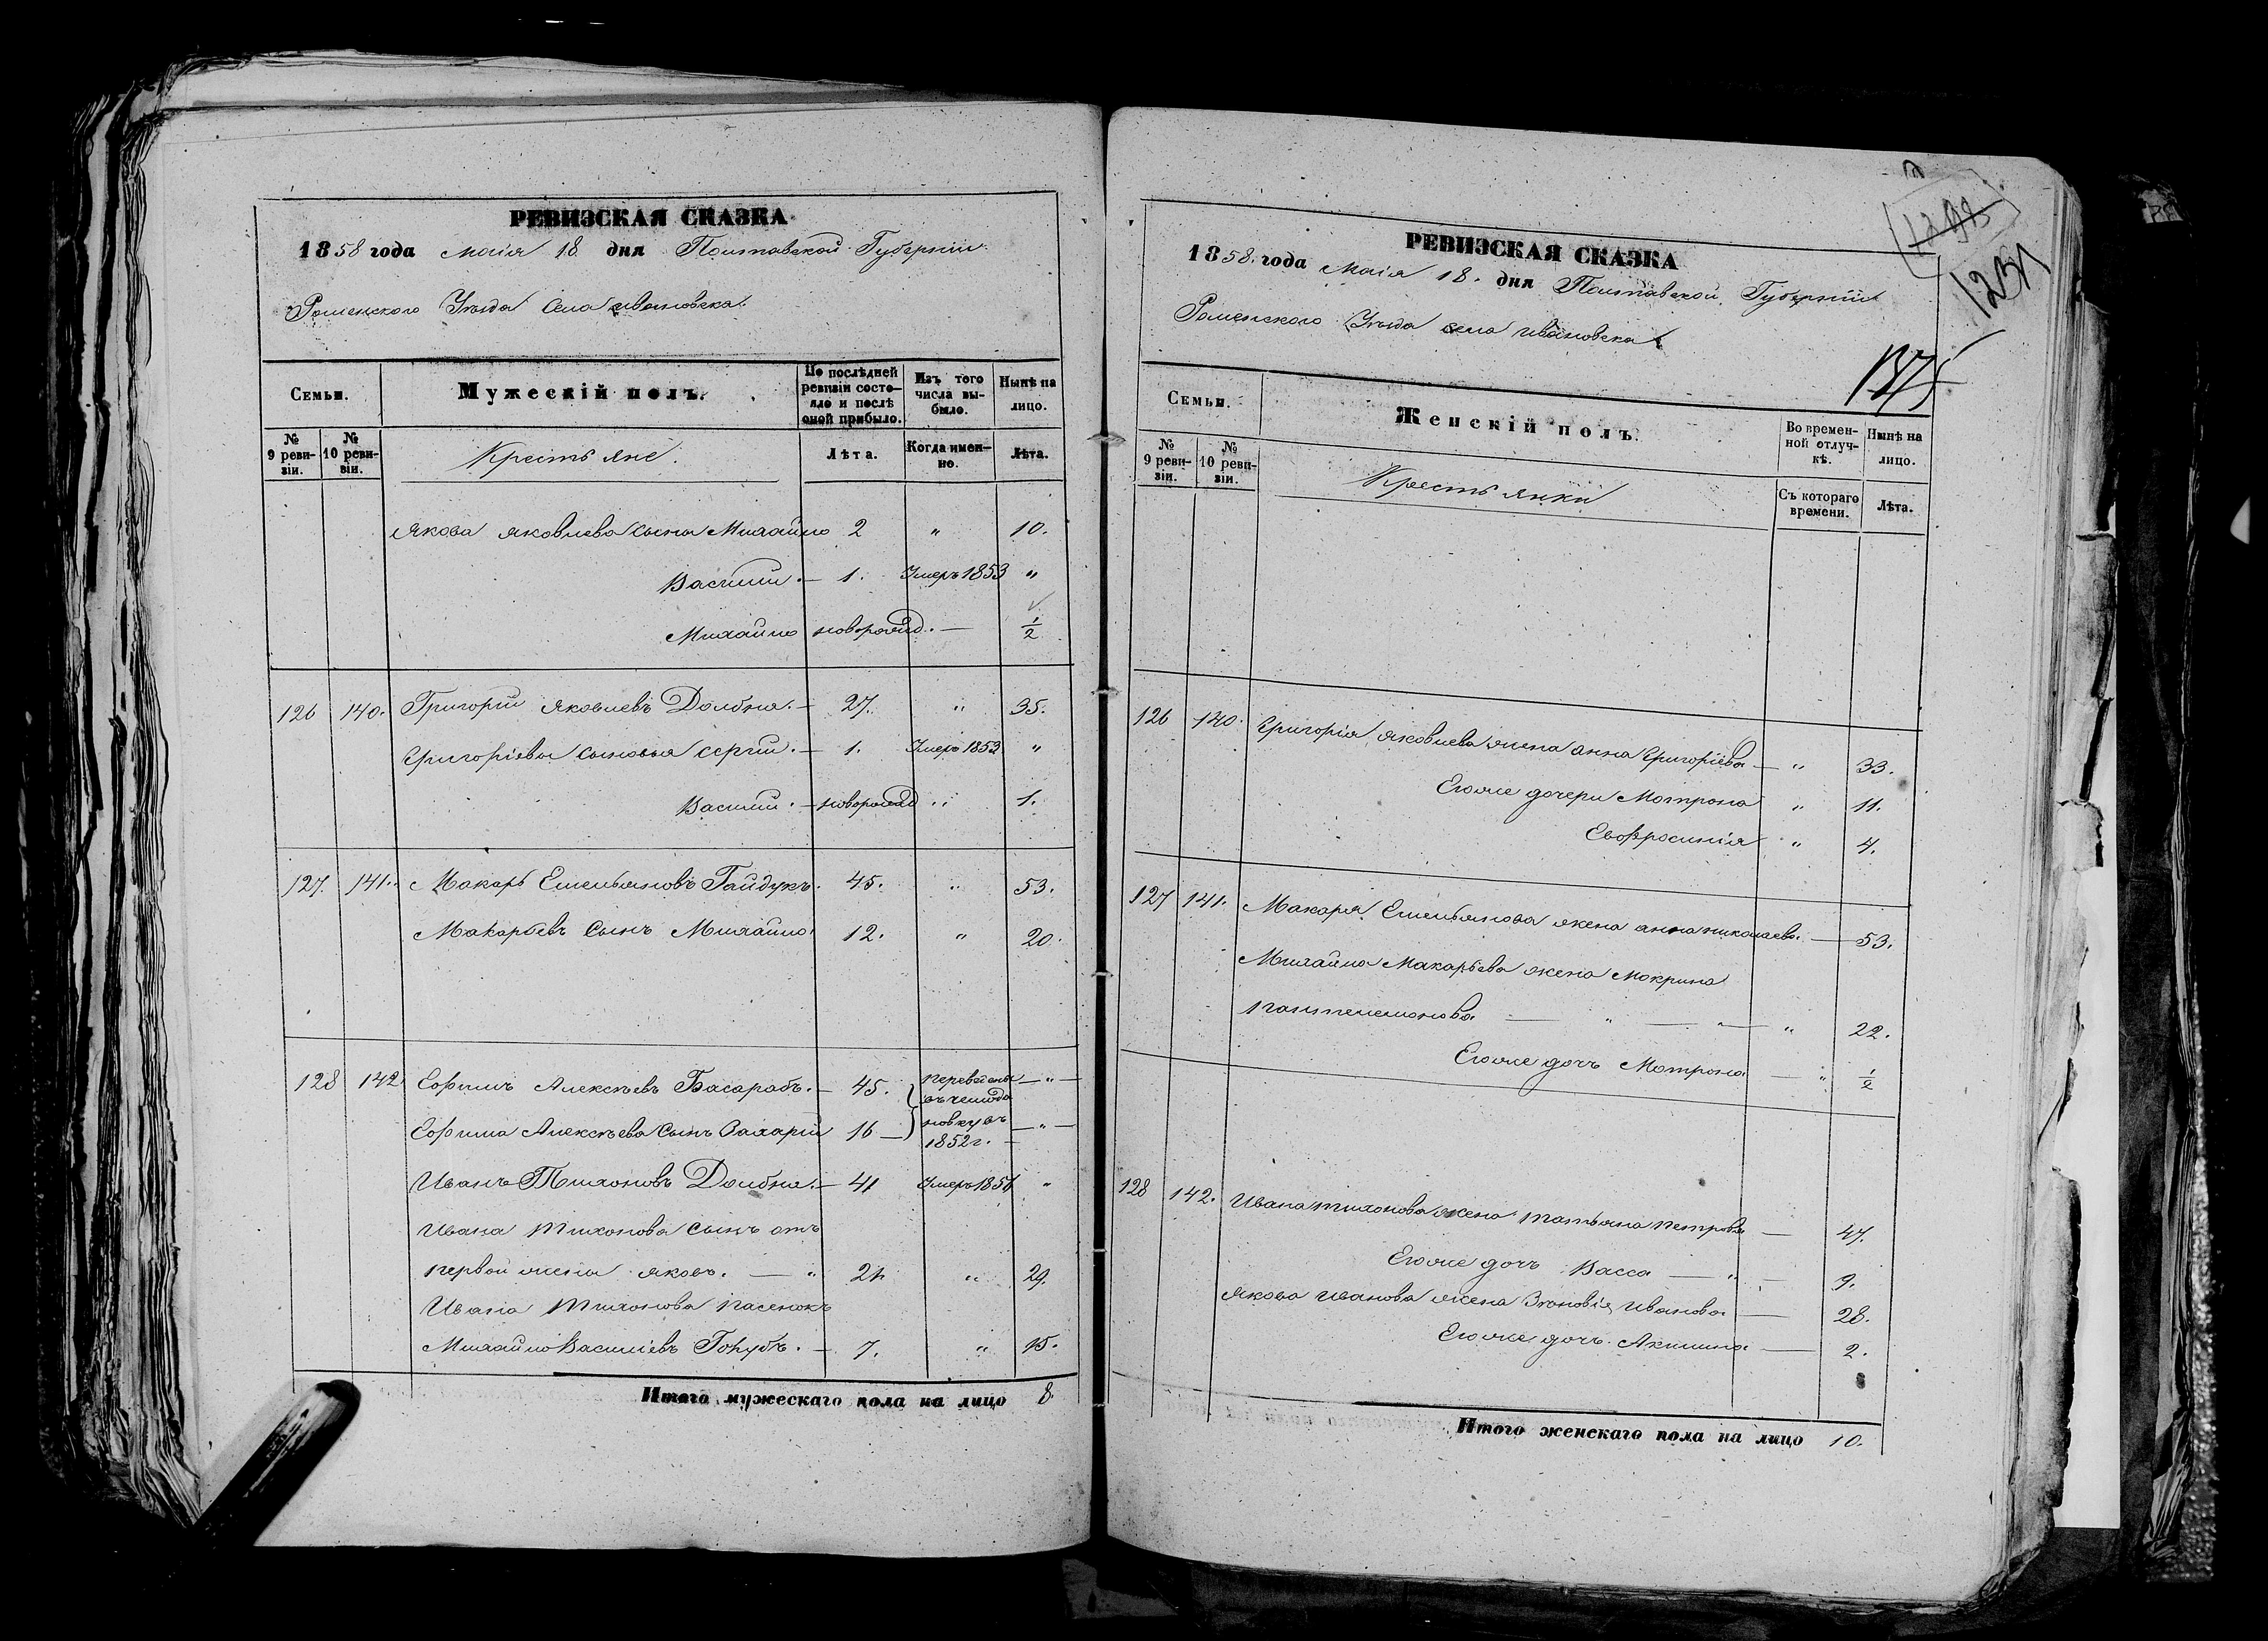 РЕВИЗСКАЯ СКАЗКА
1858 года маія 18 дня Полтавской Губерніи
Роменского Уѣзда села ивановска
Семьи. Мужескій полъ. По послѣдней ревизіи состояло и послѣ оной прибыло. Изъ того числа выбыло. Нынѣ на лицо.
№ 9 ревизіи. № 10 ревизіи. Крестьяне. Лѣта. Когда именно. Лѣта.
Якова яковлева сыны Михайло 2 " 10.
Василій. — 1. Умеръ 1853 "
Михайло новорожд. — 1/2
126 140. Григорій яковлевъ Долбня. — 27. " 35.
Григоріевы сыновья сергій. — 1. Умеръ 1853 "
Василій. — новорожд " 1.
127. 141. Макаръ Емельяновъ Гайдукъ. 45. " 53.
Макарьевъ сынъ Михайло. 12. " 20.
128 142 Ефимъ Алексѣевъ Басарабъ. — 45. переведены — " —
въ чемода
Ефима Алексѣева сынъ Захарій 16 — новку въ — " —
1852 г. —
Иванъ Тихоновъ Долбня. — 41 Умеръ 1856 "
Ивана тихонова сынъ отъ
первой жены яковъ. — " 21 " 29.
Ивана тихонова пасенокъ
Михайло Василіевъ Голубъ. — 7. " 15.
Итого мужескаго пола на лицо 8.
1231
1375
РЕВИЗСКАЯ СКАЗКА
1858. года Маія 18. дня Полтавской Губерніи
Роменского Уѣзда села ивановска
Семьи. Женскій полъ. Во временной отлучкѣ. Нынѣ на лицо.
№ 9 ревизіи. № 10 ревизіи. Крестьянки Съ котораго времени. Лѣта.
126 140. Григорія яковлева жена анна Григоріева — " 33.
Егоже дочери Мотрона " 11.
Евфросинія " 4.
127 141. Макара Емельянова жена анна николаева. — 53.
Михайла Макарьева жена Мокрина
пантелемонова — " — " — " 22.
Егоже дочь Мотрона — " 1/2
128 142. Ивана тихонова жена татьяна петрова — 47.
Егоже дочь Васса — " — 9.
Якова иванова жена Зѣновія иванова — 28.
Егоже дочь Акилина — 2.
Итого женскаго пола на лицо 10.